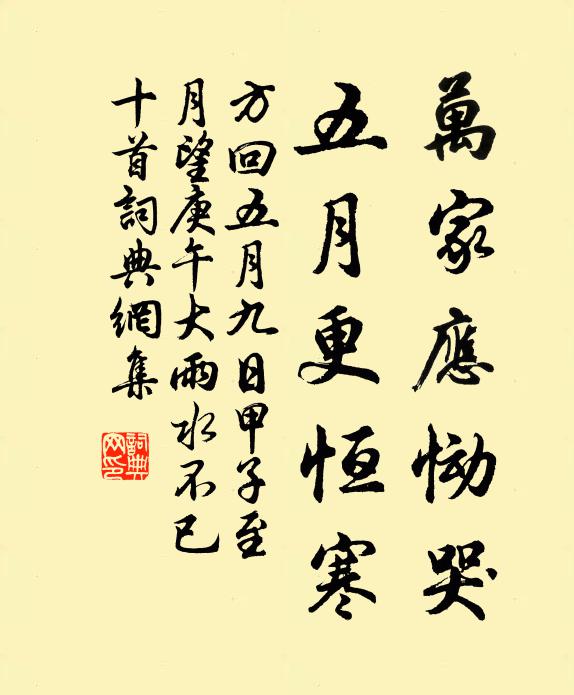 萬家應慟哭
五月更恒寒
方回五月九日甲子至
月望庚午大雨水不已
十首詞典網集
詞典網印